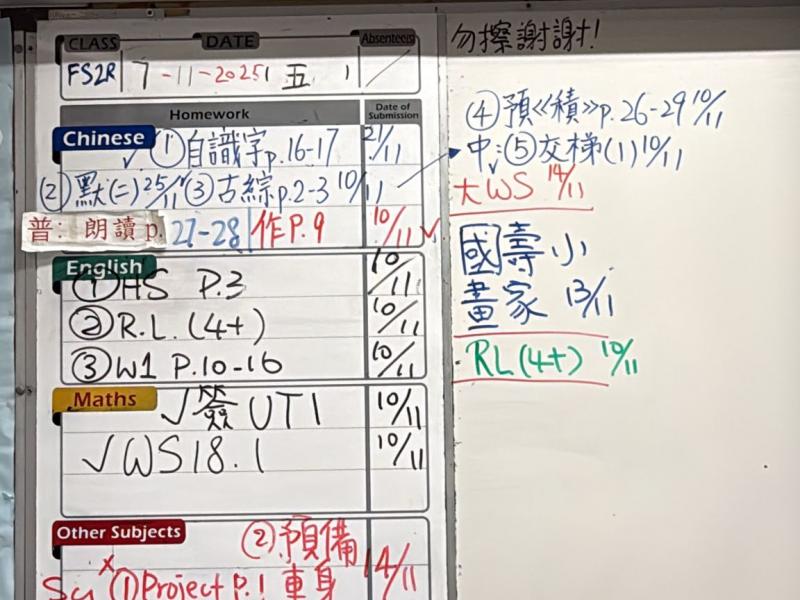 CLASS DATE Absentees
FS2R 7-11-2025 五
Homework Date of Submission
Chinese
✓①自識字p.16-17 21/11
②默(二)25/11 ✓③古綜p.2-3 10/11
普：朗讀p.27-28 作P.9 10/11 ✓
English
①HS P.3 10/11
②R.L.(4+) 10/11
③W1 P.10-16 10/11
Maths
✓簽UT1 10/11
✓WS18.1 10/11
Other Subjects
②預備
①Project P.1 車身 14/11
勿擦謝謝!
④預《積》p.26-29 10/11
中:⑤交梯(1) 10/11
大WS 14/11
國壽小
畫家 13/11
RL(4+) 10/11